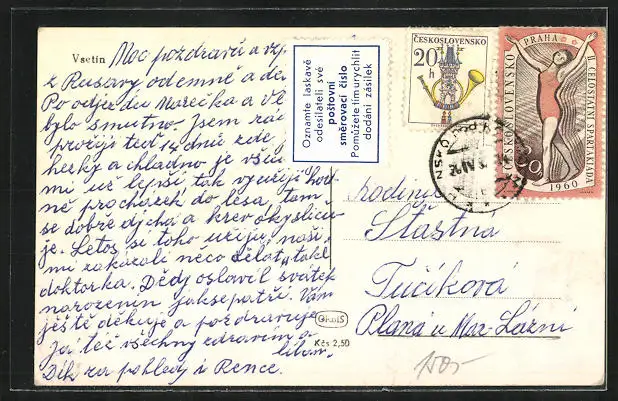 Vsetín
Moc pozdravů a vzp
z Rusavy od emně a dě
Po odjezdu Mařečka a Vl
bylo smutno. Jsem rá
prožiji teď 14 dnů zde
hezky a chladno je všu
mi už lepší tak využiji hod
ně procházek do lesa, tam
se dobře dýchá a krev okysliču
je. Letos se toho užiju, naši
mi zakázali něco dělat, také
doktorka. Dědy oslavil svátek
narozenin jaksepatří. Vám
ještě děkuje a pozdravuje
Já též všechny zdravím a
líbám.
Dík za pohledy i Rence.
Oznamte laskavě
odesílateli své
poštovní
směrovací číslo
Pomůžete tím urychlit
dodání zásilek
ČESKOSLOVENSKO
20
h
PRAHA
II. CELOSTÁTNÍ SPARTAKIÁDA
ČESKOSLOVENSKO
1960
rodina
Šťastna
Tučíková
Planá u Mar. Lázní
ORBIS
Kčs 2,50